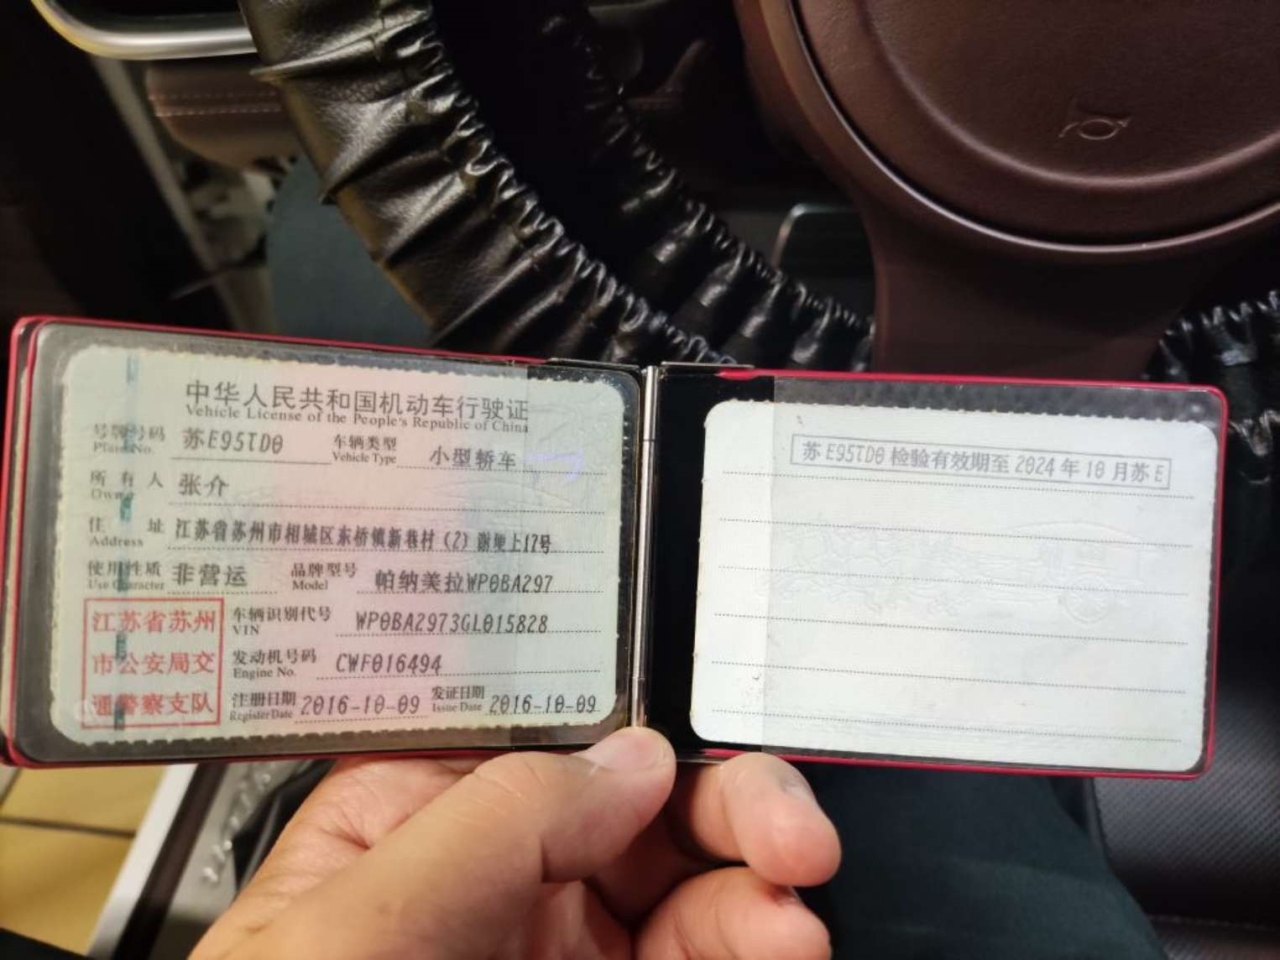 中华人民共和国机动车行驶证
Vehicle License of the People's Republic of China
号牌号码 苏E95TD0 车辆类型 小型轿车
Plate No. Vehicle Type
所有人 张介
Owner
住址 江苏省苏州市相城区东桥镇新巷村（2）谢埂上17号
Address
使用性质 非营运 品牌型号 帕纳美拉WP0BA297
Use Character Model
江苏省苏州
市公安局交
通警察支队
车辆识别代号 WP0BA2973GL015828
VIN
发动机号码 CWF016494
Engine No.
注册日期 2016-10-09 发证日期 2016-10-09
Register Date Issue Date
苏E95TD0检验有效期至2024年10月苏E